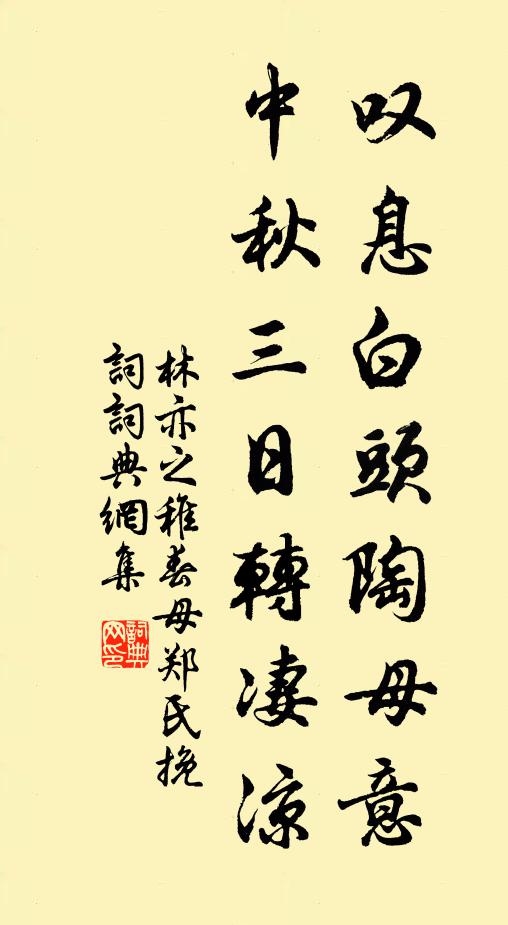 叹息白頭陶母意
中秋三日轉凄涼
林亦之稚春母郑氏挽
詞詞典網集
詞典
网印